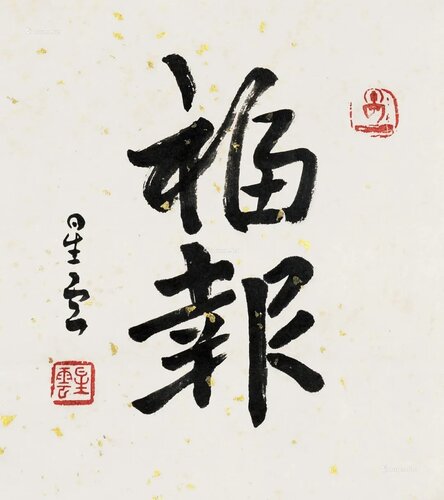 福報
星云
星雲